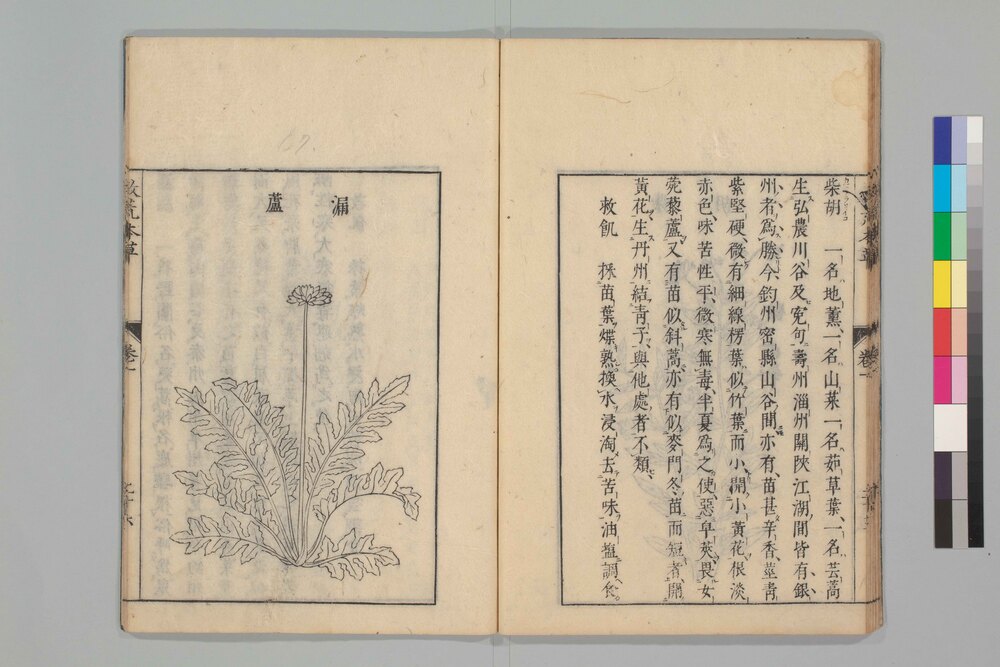 柴胡 一名地薰、一名山菜、一名茹草葉、一名芸蒿
生弘農川谷及冤句、壽州淄州關陜江湖間皆有、銀
州者爲勝、今鈞州密縣山谷間亦有、苗甚辛香、莖青
紫堅硬、微有細線楞、葉似竹葉而小、開小黃花、根淡
赤色、味苦性平、微寒無毒、半夏爲之使、惡皁莢、畏女
菀藜蘆、又有苗似斜蒿、亦有似麥門冬苗而短者、開
黃花、生丹州、結青子、與他處者不類、
救飢 採苗葉煠熟、換水浸淘去苦味、油鹽調食。
漏
蘆
救荒本草
卷之